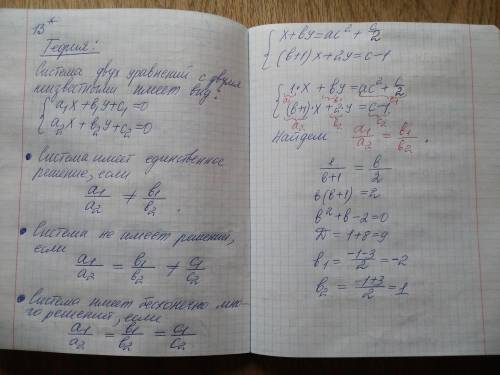 13*
Теория:
Система двух уравнений с двумя
неизвестными имеет вид:
{ a₁x + b₁y + c₁ = 0
{ a₂x + b₂y + c₂ = 0
• Система имеет единственное
решение, если
a₁/a₂ ≠ b₁/b₂
• Система не имеет решений,
если
a₁/a₂ = b₁/b₂ ≠ c₁/c₂
• Система имеет бесконечно мно-
го решений, если
a₁/a₂ = b₁/b₂ = c₁/c₂
{ x + by = ac² + c/2
{ (b+1)x + 2y = c - 1
{ 1·x + by = ac² + c/2
a₁ b₁ c₁
{ (b+1)·x + 2·y = c - 1
a₂ b₂ c₂
Найдем a₁/a₂ = b₁/b₂
1/(b+1) = b/2
b(b+1) = 2
b² + b - 2 = 0
D = 1 + 8 = 9
b₁ = (-1-3)/2 = -2
b₂ = (-1+3)/2 = 1